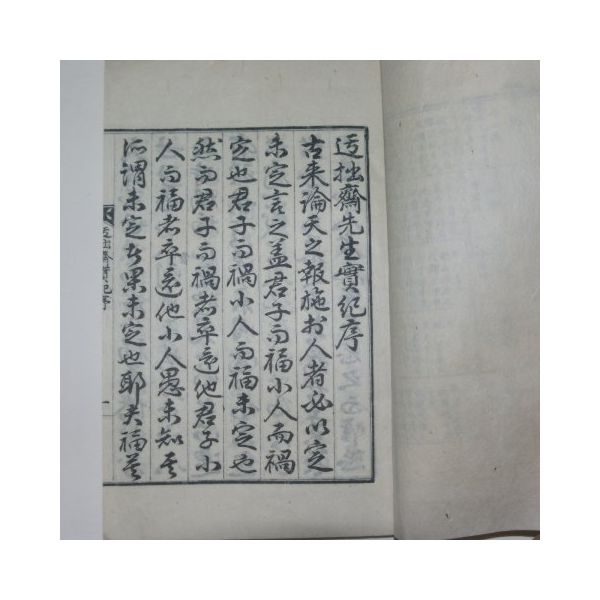 迃拙齋先生實紀序
古来論天之報施於人者必以定
未定言之盖君子而福小人而禍
定也君子而禍小人而福未定也
然而君子而禍者卒還他君子小
人而福者卒還他小人愚未知其
所謂未定者果未定也耶夫福善
拙齋實紀序
一